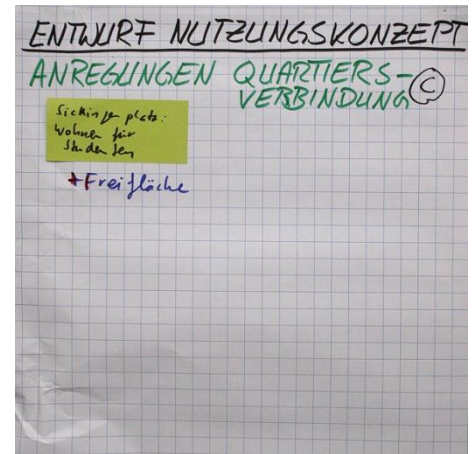 ENTWURF NUTZUNGSKONZEPT
ANREGUNGEN QUARTIERS-
VERBINDUNG C
Sickingerplatz:
Wohnen für
Studenten
+Freifläche